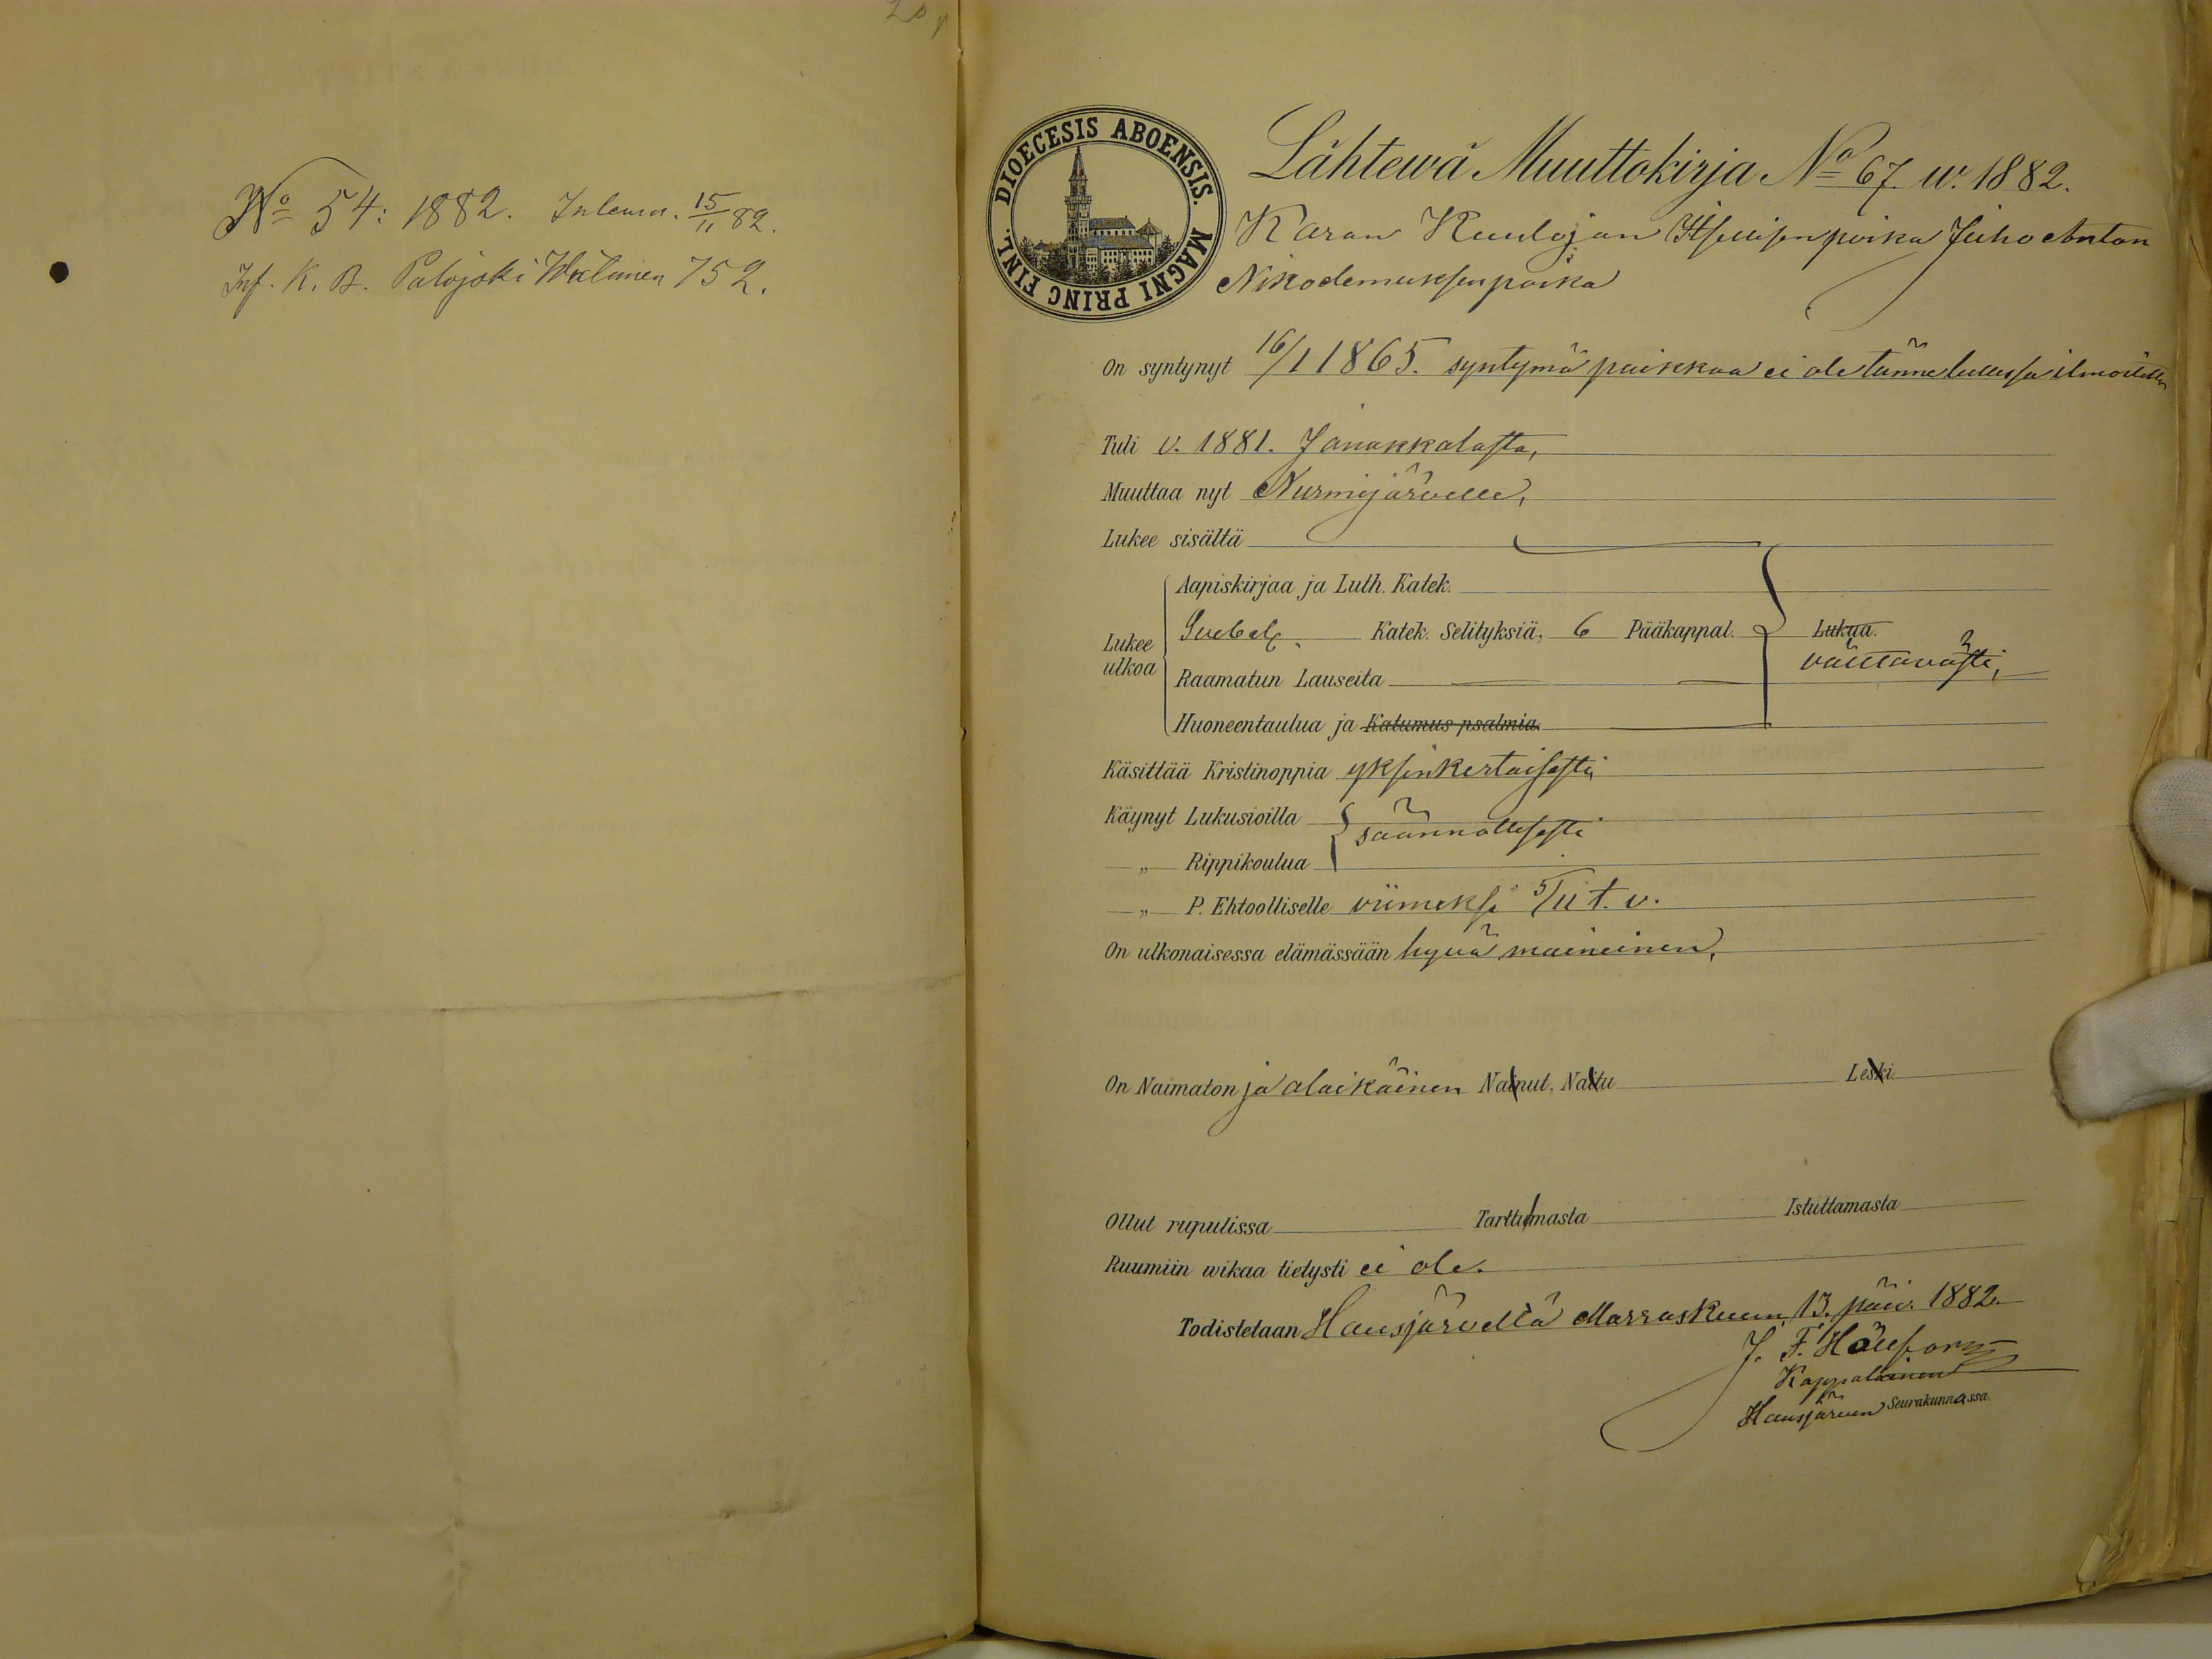 No 54: 1882. Inlemn. 15/11 82.
Inf. K. B. Palojoki 752.
DIOECESIS ABOENSIS. MAGNI PRINC FINL.
Lähtewä Muuttokirja No 67 w. 1882.
Karan Itsellisen poika Juho Anton
Nikodemuksen poika
On syntynyt 16/1 1865. syntymä paikkaa ei ole tänne ilmoitettu
Tuli v. 1881. Janakkalasta,
Muuttaa nyt Nurmijärvelle,
Lukee sisältä
Lukee ulkoa
Aapiskirjaa ja Luth. Katek.
Svebel. Katek. Selityksiä, 6 Pääkappal. Lukua.
välttävästi,
Raamatun Lauseita
Huoneentaulua ja Katumus psalmia.
Käsittää Kristinoppia yksinkertaisesti
Käynyt Lukusioilla säännöllisesti
—„— Rippikoulua
—„— P. Ehtoolliselle viimeksi 5/11 t. v.
On ulkonaisessa elämässään hyvä maineinen,
On Naimaton ja alaikäinen Nainut, Naitu Leski.
Ollut rupulissa Tarttumasta Istuttamasta
Ruumiin wikaa tietysti ei ole.
Todistetaan Hausjärvellä Marraskuun 13. päiv. 1882.
J. F. Hällfors
Kappalainen
Hausjärven Seurakunnassa.